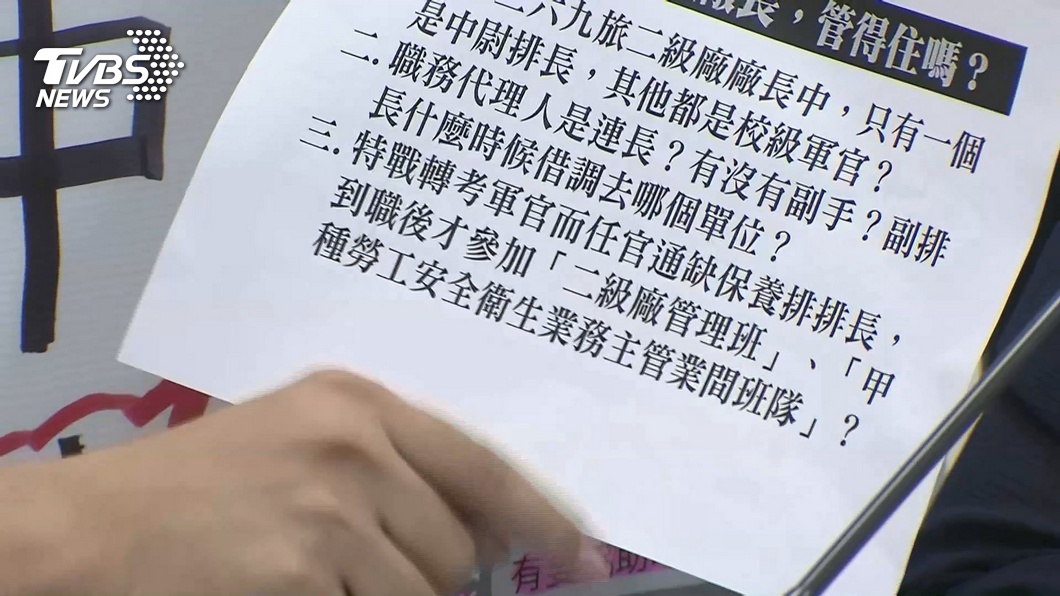 TVBS
NEWS
廠長，管得住嗎？
二六九旅二級廠廠長中，只有一個
是中尉排長，其他都是校級軍官？
二.職務代理人是連長？有沒有副手？副排
長什麼時候借調去哪個單位？
三.特戰轉考軍官而任官通缺保養排排長，
到職後才參加「二級廠管理班」、「甲
種勞工安全衛生業務主管業間班隊」？
有